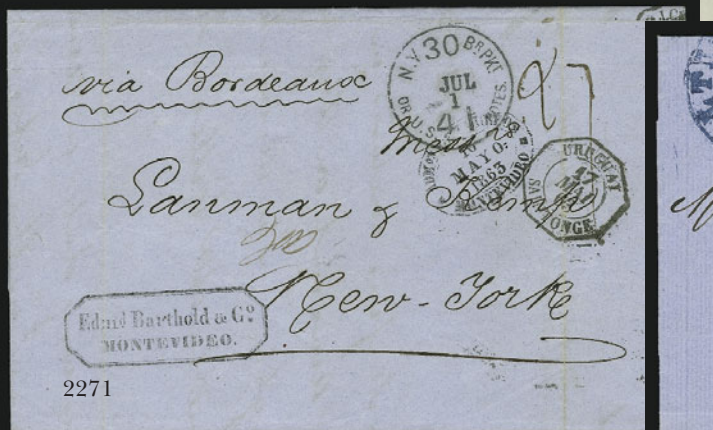 via Bordeaux
N.Y. 30 BR PKT
JUL
1
41
OR U.S. NOTES.
27
Messrs
MAYO
1863
MONTEVIDEO
URUGUAY
17
MAI
SAINTONGE
Lanman & Kemp
New-York
Edmd Barthold & Co
MONTEVIDEO.
2271
M